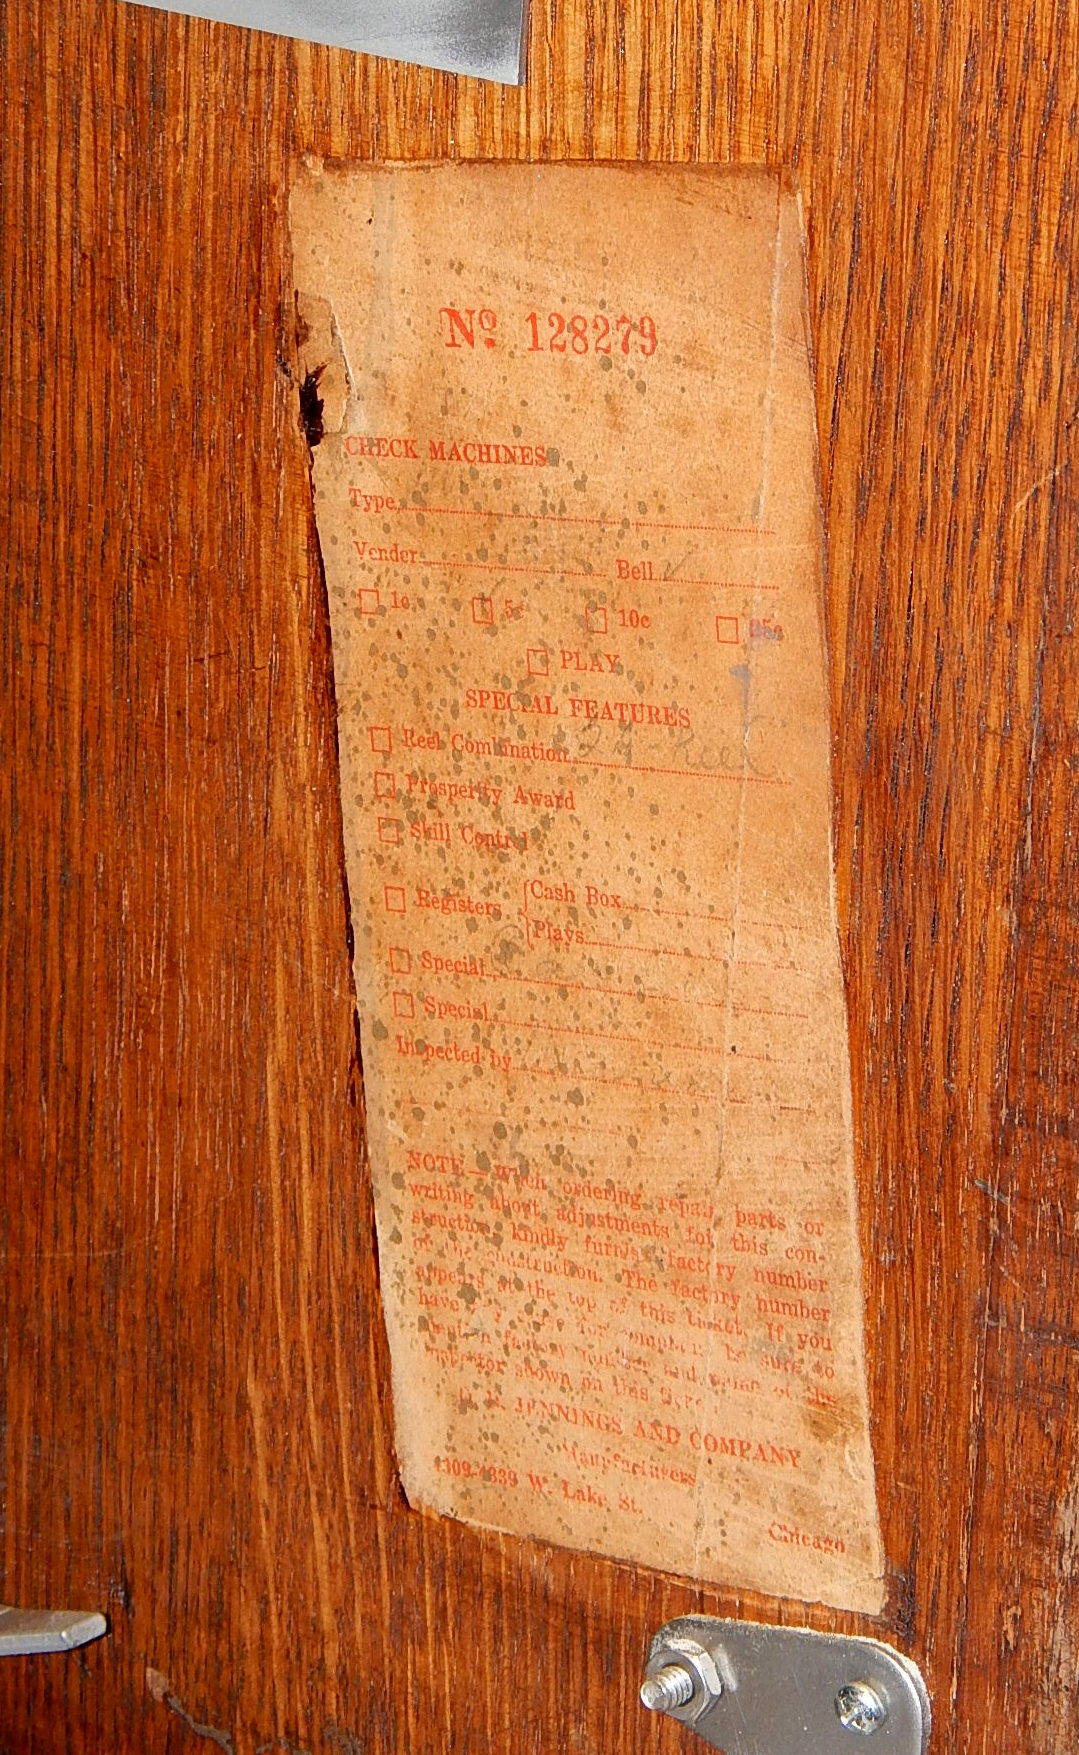 Nº 128279
CHECK MACHINES
Type
Vender Bell
1c 5c 10c 25c
PLAY
SPECIAL FEATURES
Reel Combination
Prosperity Award
Skill Control
Registers Cash Box
Plays
Special
Special
Inspected by
NOTE—When ordering repair parts or
writing about adjustments for this con-
struction kindly furnish factory number
of the construction. The factory number
appears at the top of this ticket. If you
have any for be sure to
factory number and name of the
inspector shown on this
JENNINGS AND COMPANY
Manufacturers
4309-4339 W. Lake St.
Chicago